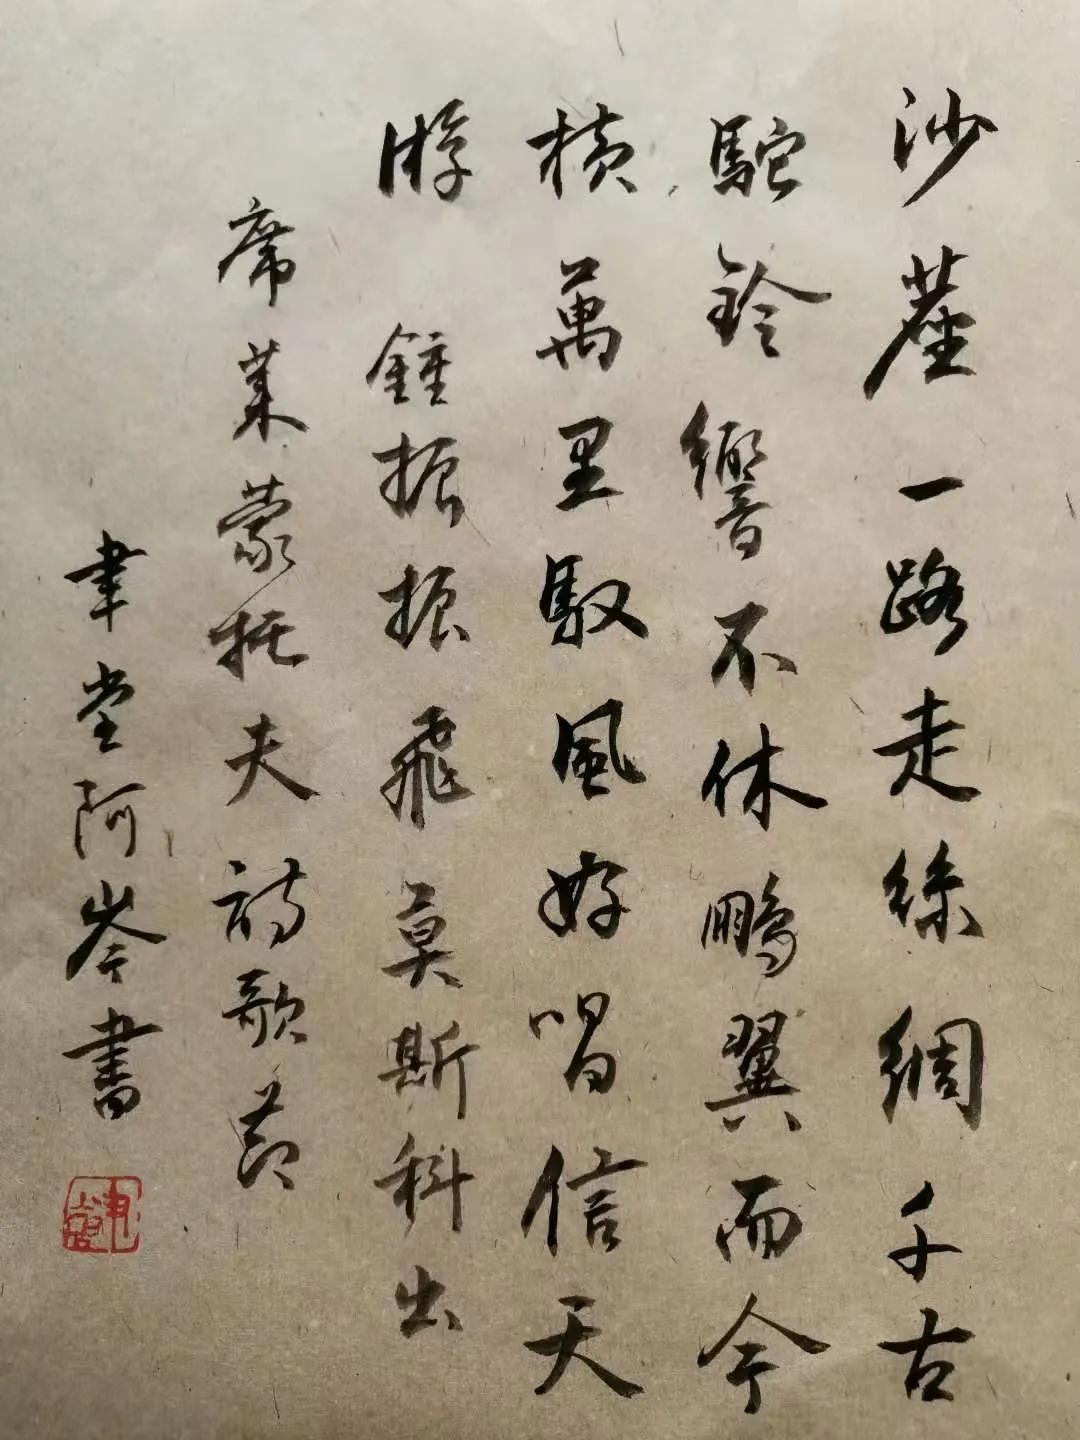 沙塵一路走絲綢千古
駝鈴響不休鵬翼而今
横萬里馭風好唱信天
游 鍾振振飛莫斯科出
席莱蒙托夫詩歌節
聿堂阿岑書